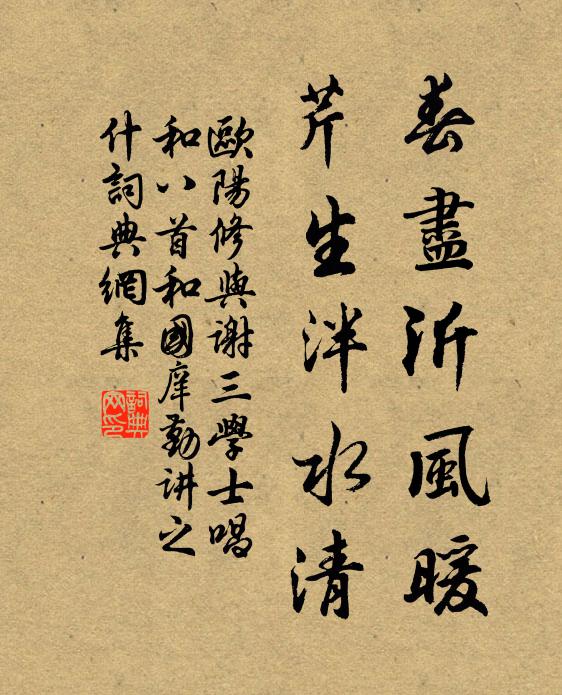 春盡沂風暖
芹生泮水清
歐陽修與謝三學士唱
和八首和國庠勤講之
什詞典網集
詞典
网印